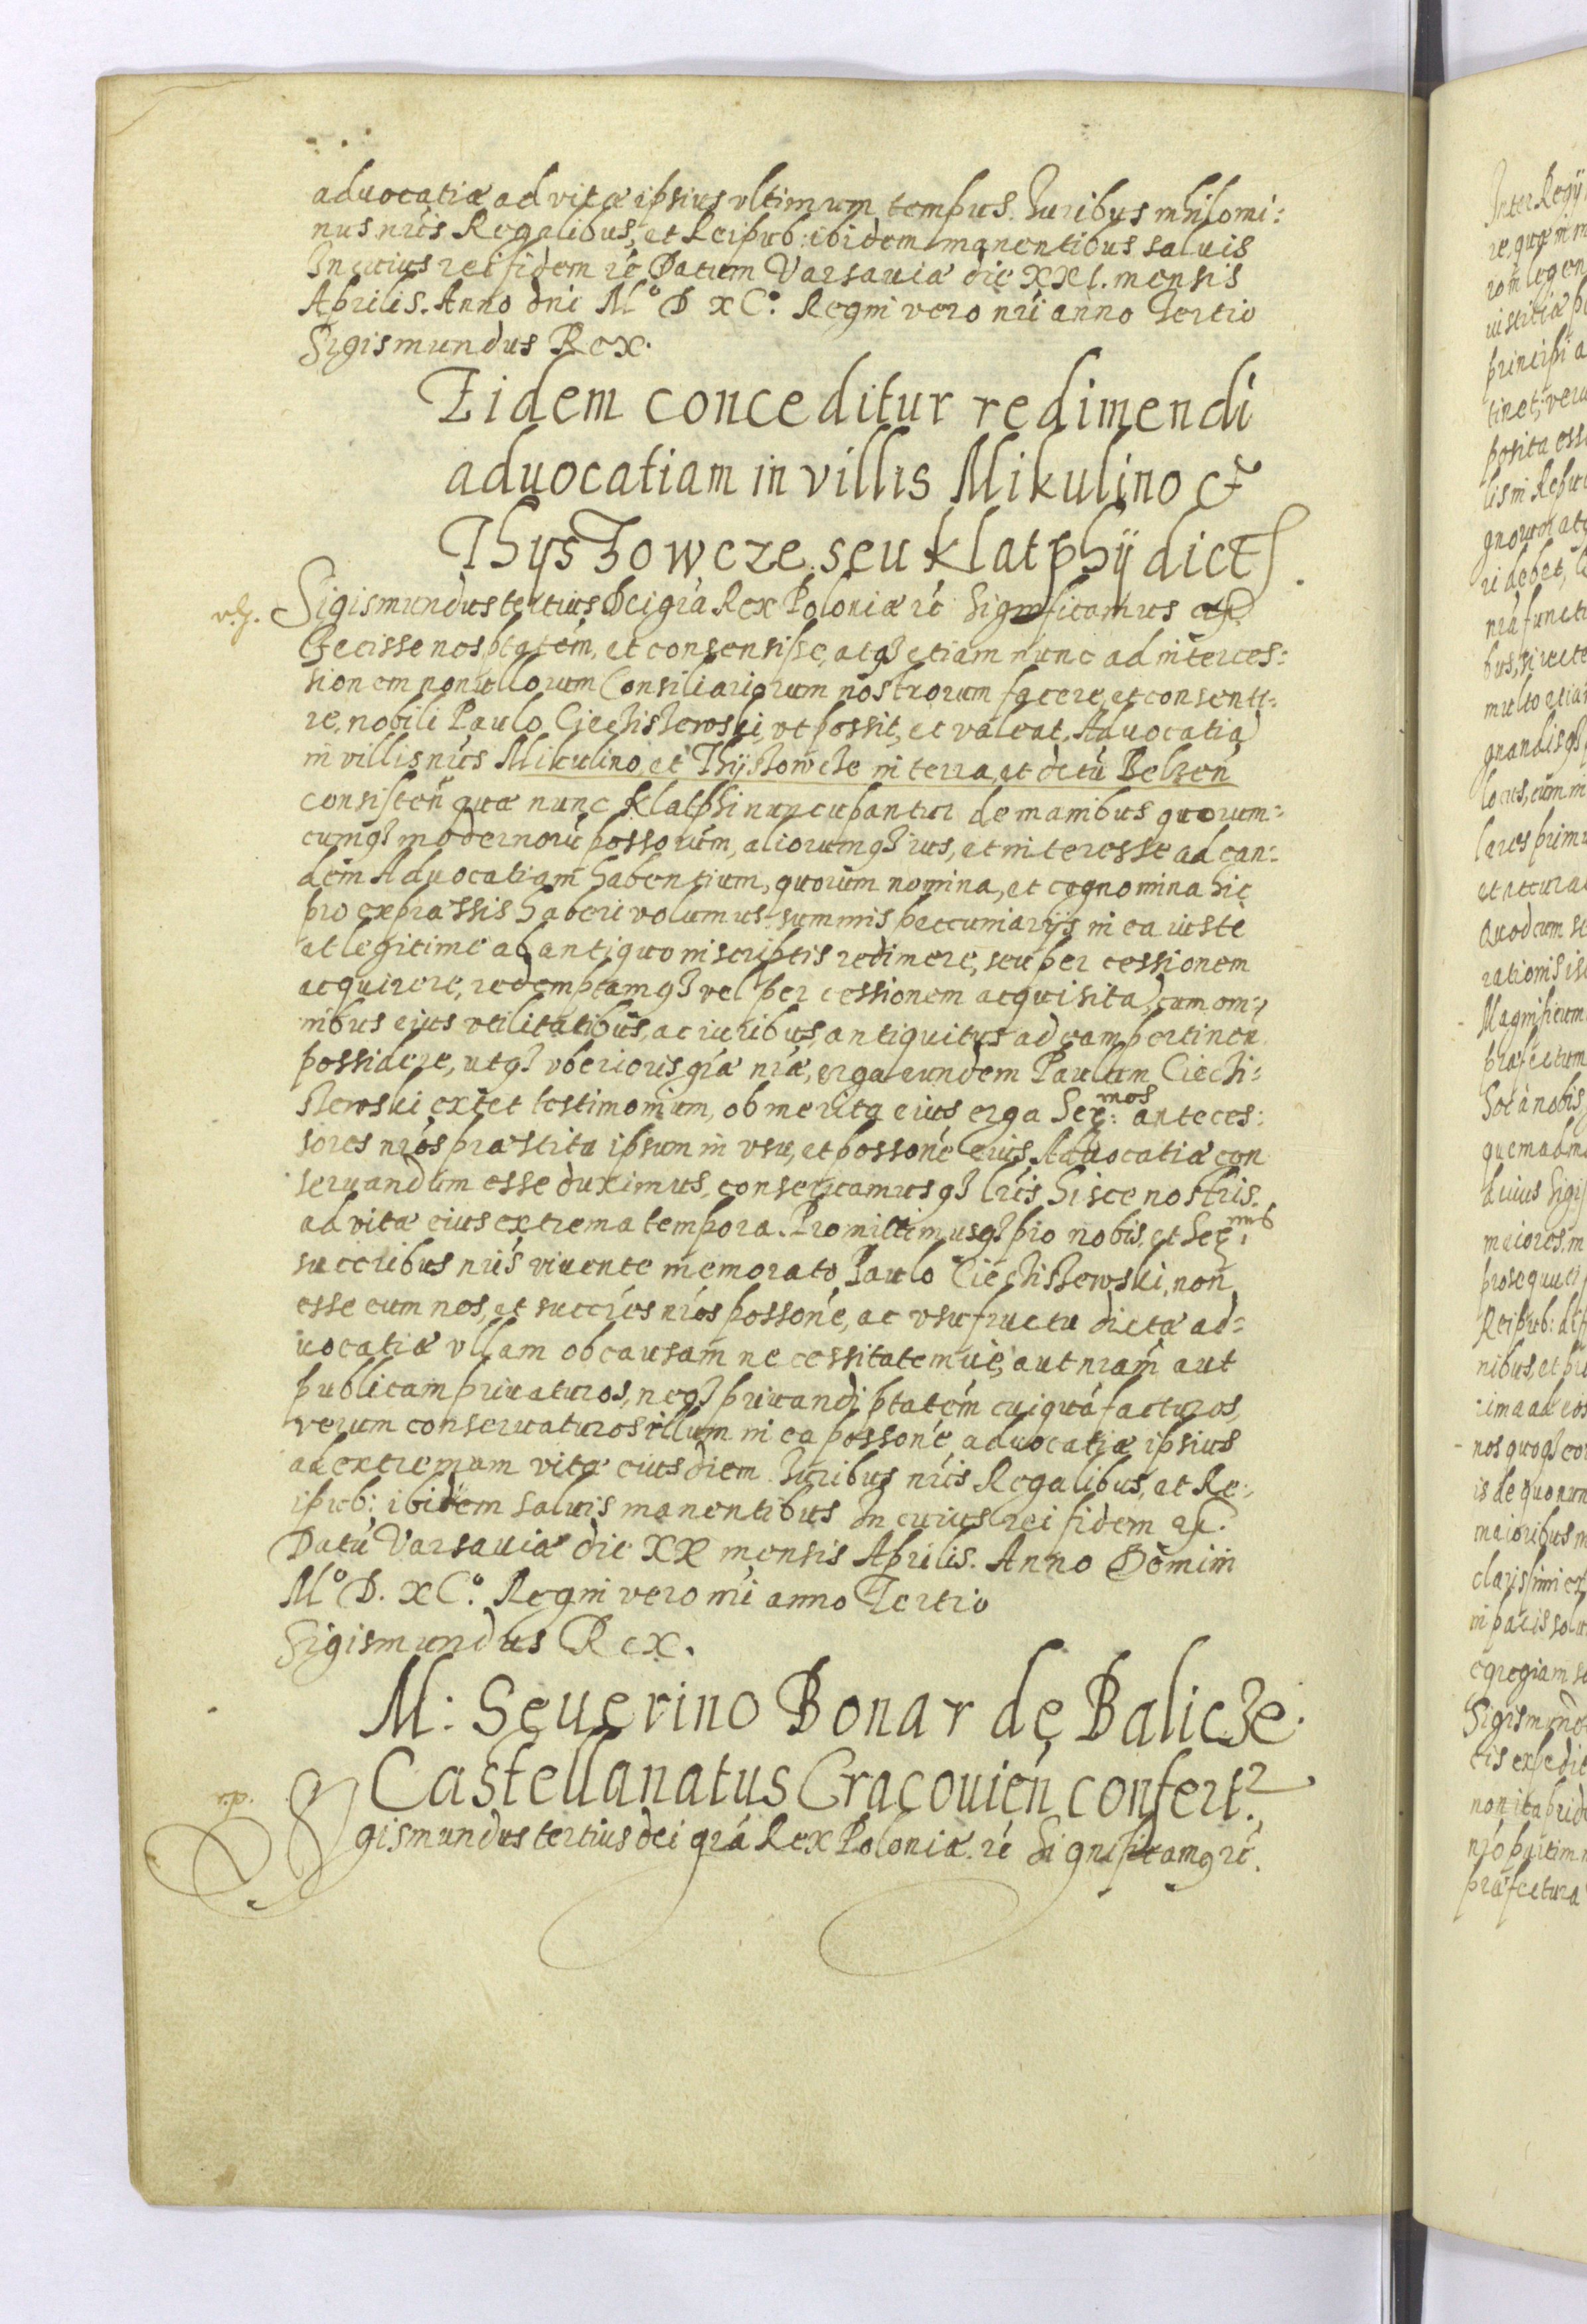 aduocatiæ ad vitæ ipsius vltimum tempus. Iuribus nihilomi:
nus nris Regalibus, et Reipub: ibidem manentibus saluis
In cuius rei fidem rc Datum Varsauiæ die XXI. mensis
Aprilis. Anno dni Mº D xCº. Regni vero nri anno Tertio
Sigismundus Rex.
Eidem conceditur redimendi
aduocatiam in villis Mikulino et
Thyszowcze seu Klatphÿ dict.
Sigismundus tertius Dei gra Rex Poloniæ rc Significamus etc
Fecisse nos ptatem, et consensisse, atq3 etiam nunc ad interces:
sionem nonullorum Consiliariorum nostrorum facere, et consenti:
re, nobili Paulo Ciechiszewski, vt possit, et valeat, Aduocatiã
in villis nris Mikulino, et Thÿszowcze in terra, et dctu Belzen
consisten quæ nunc Klatphi nuncupantur de manibus quorum:
cumq3 modernorũ possorum, aliorumq3 ius, et interesse ad ean:
dem Aduocatiam habentium, quorum nomina, et cognomina hic
pro expræssis haberi volumus summis peccuniarijs in ea iuste
et legitime ab antiquo inscriptis redimere, seu per cessionem
acquirere, redemptamq3 vel per cessionem acquisitã, cum om:
nibus eius vtilitatibus, ac iuribus, antiquitus ad eam pertinen
possidere, utq3 vberioris græ nræ, erga eundem Paulum Ciechi:
szewski extet testimonium, ob merita eius erga Ser:mos anteces:
sores nros præstita ipsum in vsu, et possone eius Aduocatiæ con
seruandum esse duximus, conseruamusq3 lris hisce nostris.
ad vitæ eius extrema tempora. Promittimusq3 pro nobis, et Ser:mis
succribus nris viuente memorato Paulo Ciechiszewski, non
esse eum nos, et succres nros possone, ac vsufructu dictæ ad:
uocatiæ vllam ob causam necessitatemue, aut nram aut
publicam priuaturos, neq3 priuandi ptatem cuiquã facturos,
verum conseruaturos illum in ea possone aduocatiæ ipsius
ad extremum vitæ eius diem. Iuribus nris Regalibus, et Re:
ipub: ibidem saluis manentibus In cuius rei fidem rc.
Datũ Varsauiæ die XX mensis Aprilis. Anno Domini
Mº D. xCº. Regni vero nri anno Tertio
Sigismundus Rex.
M: Seuerino Bonar de Balicze.
Castellanatus Cracouien confert.
Sigismundus tertius dei gra Rex Poloniæ. rc Significamq rc.